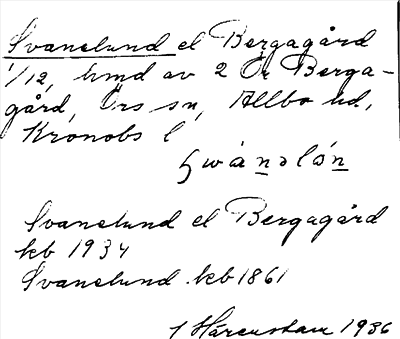 Svanelund el Bergagård
1/12, hmd av 2 Ör Berga-
gård, Örs sn, Allbo hd,
Kronobs l
Svanelund el Bergagård
kb 1934
Svanelund kb 1861
1936